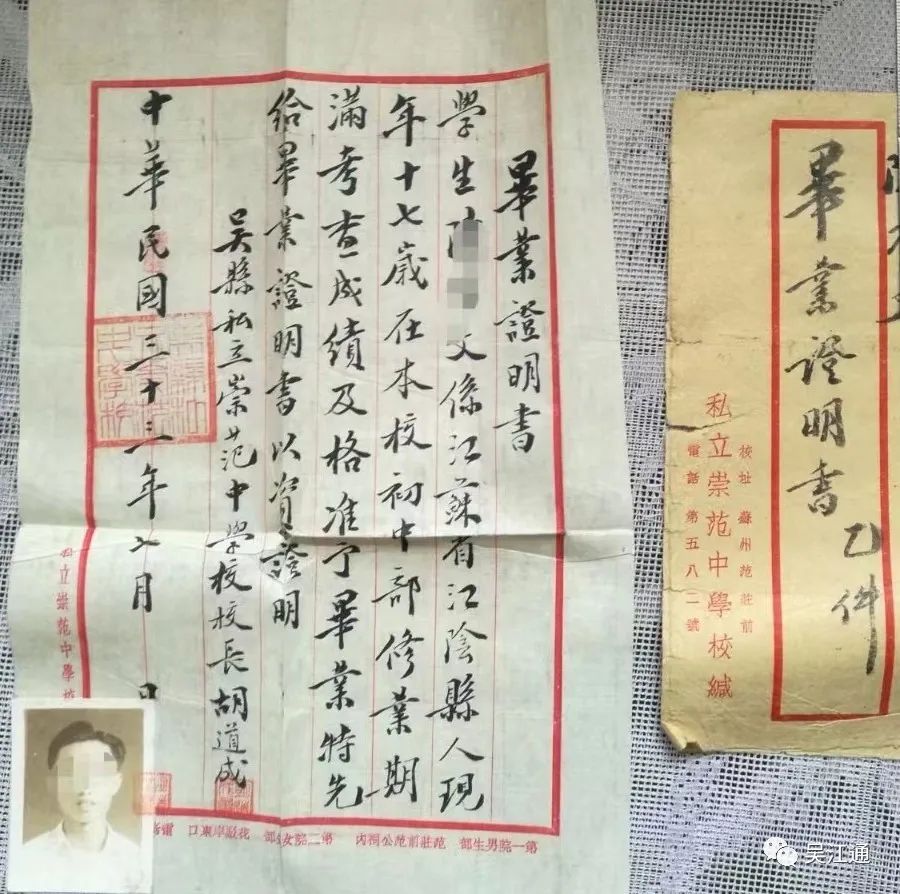 畢業證明書
學生陸文係江蘇省江陰縣人現
年十七歲在本校初中部修業期
滿考查成績及格准予畢業特先
給畢業證明書以資證明
吳縣私立崇范中學校校長胡道成
中華民國三十三年七月 日
私立崇范中學校
第一院男生部 范莊前范公祠內 第二院女部 花駁岸東口 電話
畢業證明書 乙件
校址 蘇州范莊前
私立崇范中學校緘
電話 第五八二號
吴江通